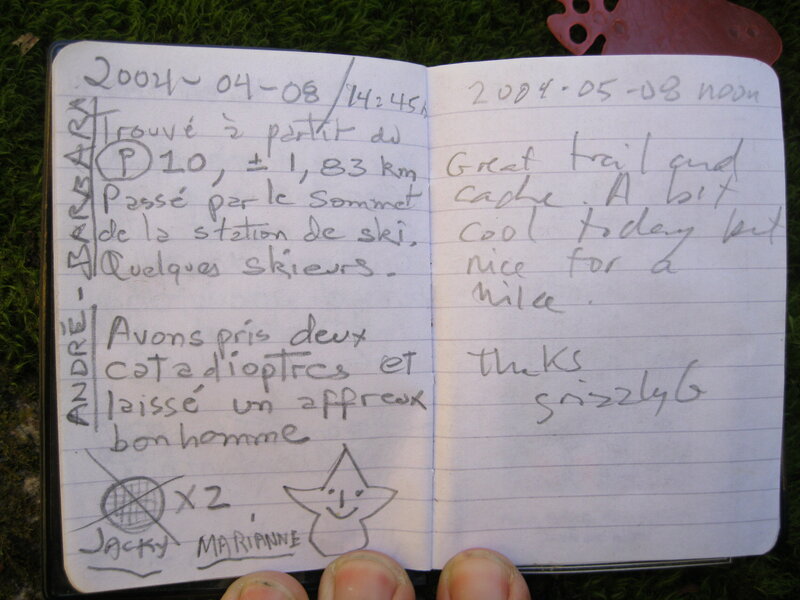 2004-04-08 / 14:45h
ANDRÉ-BARBARA
Trouvé à partir du
P 10, ± 1,83 km
Passé par le sommet
de la station de ski.
Quelques skieurs.
Avons pris deux
catadioptres et
laissé un affreux
bonhomme
X2
JACKY MARIANNE
2004-05-08 noon
Great trail and
cache. A bit
cool today but
nice for a
hike.
thaks
grizzlyG